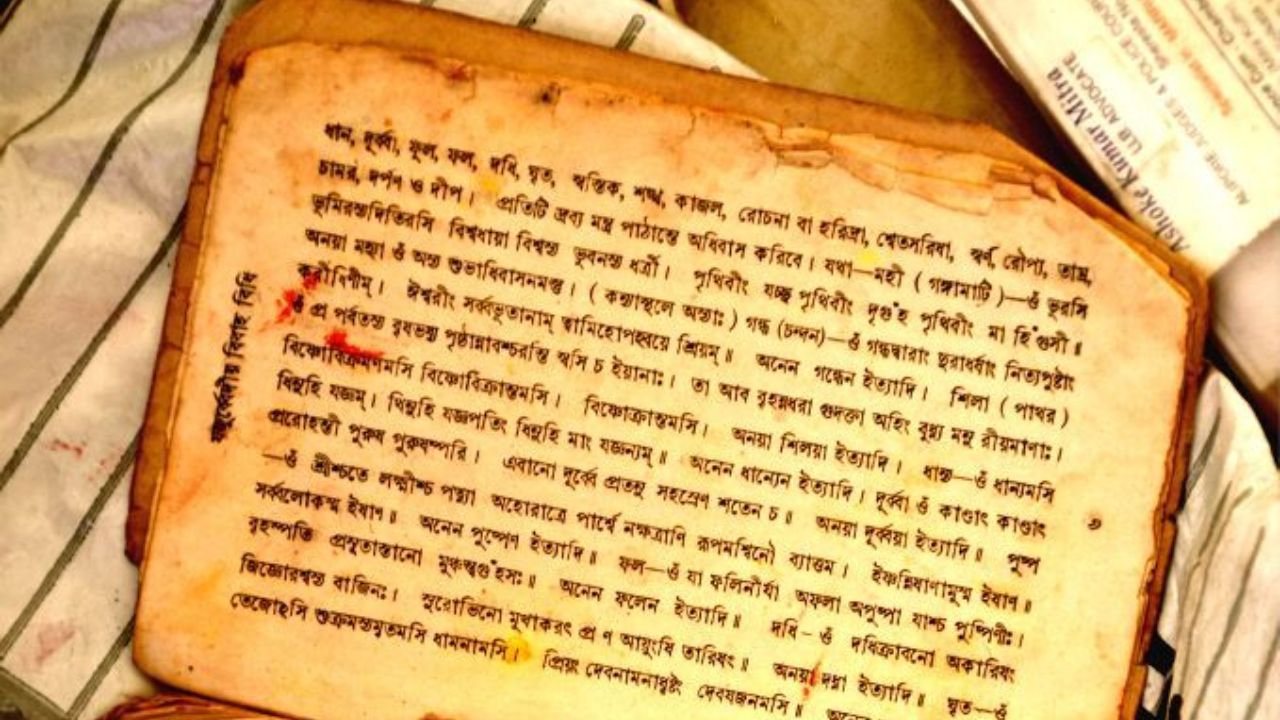 ধান, দূর্ব্বা, ফুল, ফল, দধি, ঘৃত, স্বস্তিক, শঙ্খ, কাজল, রোচনা বা হরিদ্রা, শ্বেতসরিষা, স্বর্ণ, রৌপ্য, তাম্র,
চামর, দর্পণ ও দীপ। প্রতিটি দ্রব্য মন্ত্র পাঠান্তে অধিবাস করিবে। যথা—মহী ( গঙ্গামাটি )—ওঁ ভূরসি
ভূমিরস্যদিতিরসি বিশ্বধায়া বিশ্বস্য ভুবনস্য ধর্ত্রী। পৃথিবীং যচ্ছ পৃথিবীং দৃগুঁহ পৃথিবীং মা হিঁগুসী॥
অনয়া মহ্যা ওঁ অস্য শুভাধিবাসনমস্তু। ( কন্যাস্থলে অস্যাঃ ) গন্ধ (চন্দন)—ওঁ গন্ধদ্বারাং দুরাধর্ষাং নিত্যপুষ্টাং
করীষিণীম্। ঈশ্বরীং সর্ব্বভূতানাম্ ত্বামিহোপহ্বয়ে শ্রিয়ম্॥ অনেন গন্ধেন ইত্যাদি। শিলা ( পাথর )
ওঁ প্র পর্ব্বতস্য বৃষভস্য পৃষ্ঠান্নাবশ্চরন্তি স্বসি চ ইয়ানাঃ। তা আব বৃহন্নধরা গুদক্তা অহিং বুধ্ন্য মন্থ রীয়মাণাঃ।
বিষ্ণোর্বিক্রমণমসি বিষ্ণোবিক্রান্তমসি। বিষ্ণোক্রান্তমসি। অনয়া শিলয়া ইত্যাদি। ধান্য—ওঁ ধান্যমসি
ধিনুহি যজ্ঞম্। ধিনুহি যজ্ঞপতিং ধিনুহি মাং যজ্ঞন্যম্॥ অনেন ধান্যেন ইত্যাদি। দূর্ব্বা ওঁ কাণ্ডাৎ কাণ্ডাৎ
প্ররোহন্তী পুরুষ পুরুষস্পরি। এবানো দূর্ব্বে প্রতনু সহস্রেণ শতেন চ॥ অনয়া দূর্ব্বয়া ইত্যাদি॥ পুষ্প
—ওঁ শ্রীশ্চতে লক্ষ্মীশ্চ পত্ন্যা অহোরাত্রে পার্শ্বে নক্ষত্রাণি রূপমশ্বিনৌ ব্যাত্তম। ইষ্ণন্নিষাণামুম্ম ইষাণ॥
সর্ব্বলোকম্ম ইষাণ॥ অনেন পুষ্পেণ ইত্যাদি॥ ফল—ওঁ যা ফলিনীর্যা অফলা অপুষ্পা যাশ্চ পুষ্পিণীঃ।
বৃহস্পতি প্রসূতাস্তানো মুঞ্চন্ত্বগুঁহসঃ॥ অনেন ফলেন ইত্যাদি॥ দধি-ওঁ দধিক্রাবনো অকারিষং
জিষ্ণোরশ্বস্য বাজিনঃ। সুরোভিনো মুখাকরৎ প্র ণ আয়ুংষি তারিষৎ॥ অনয়া দধ্না ইত্যাদি॥ ঘৃত—ওঁ
তেজোহসি শুক্রমস্যমৃতমসি ধামনামসি। প্রিয়ং দেবনামনাধৃষ্টং দেবযজনমসি॥
যজুর্ব্বেদীয় বিবাহ বিধি
৩
Ashoke Kumar Mitra
LLB ADVOCATE